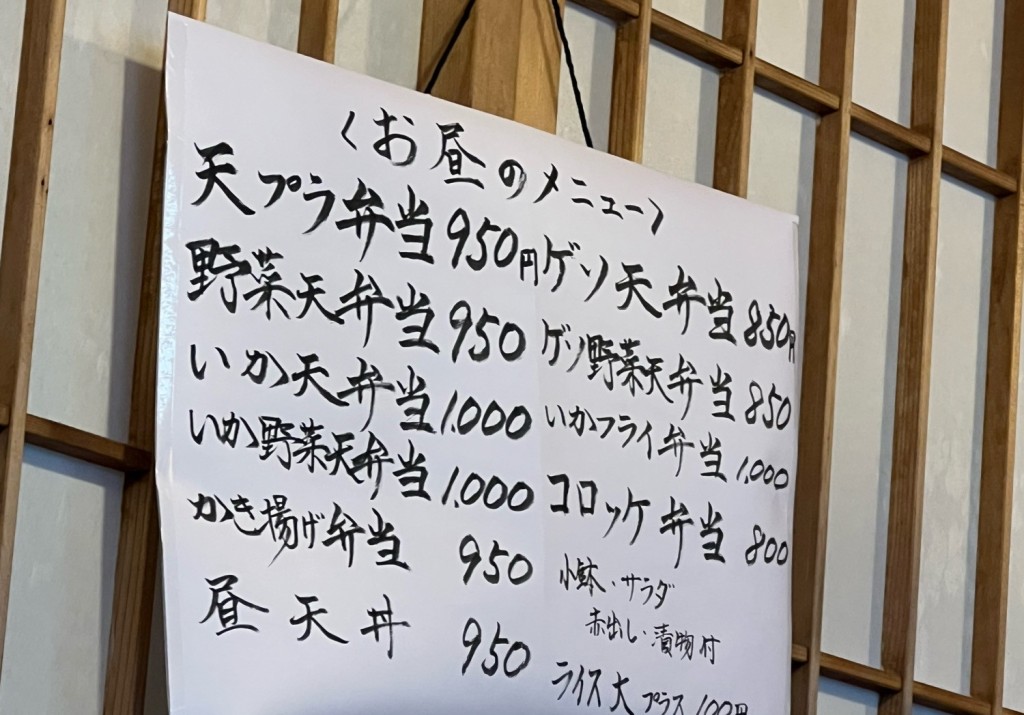 〈お昼のメニュー〉
天プラ弁当 950円
野菜天弁当 950
いか天弁当 1.000
いか野菜天弁当 1.000
かき揚げ弁当 950
昼天丼 950
ゲソ天弁当 850円
ゲソ野菜天弁当 850
いかフライ弁当 1,000
コロッケ弁当 800
小鉢・サラダ
赤出し・漬物付
ライス大 プラス 100円